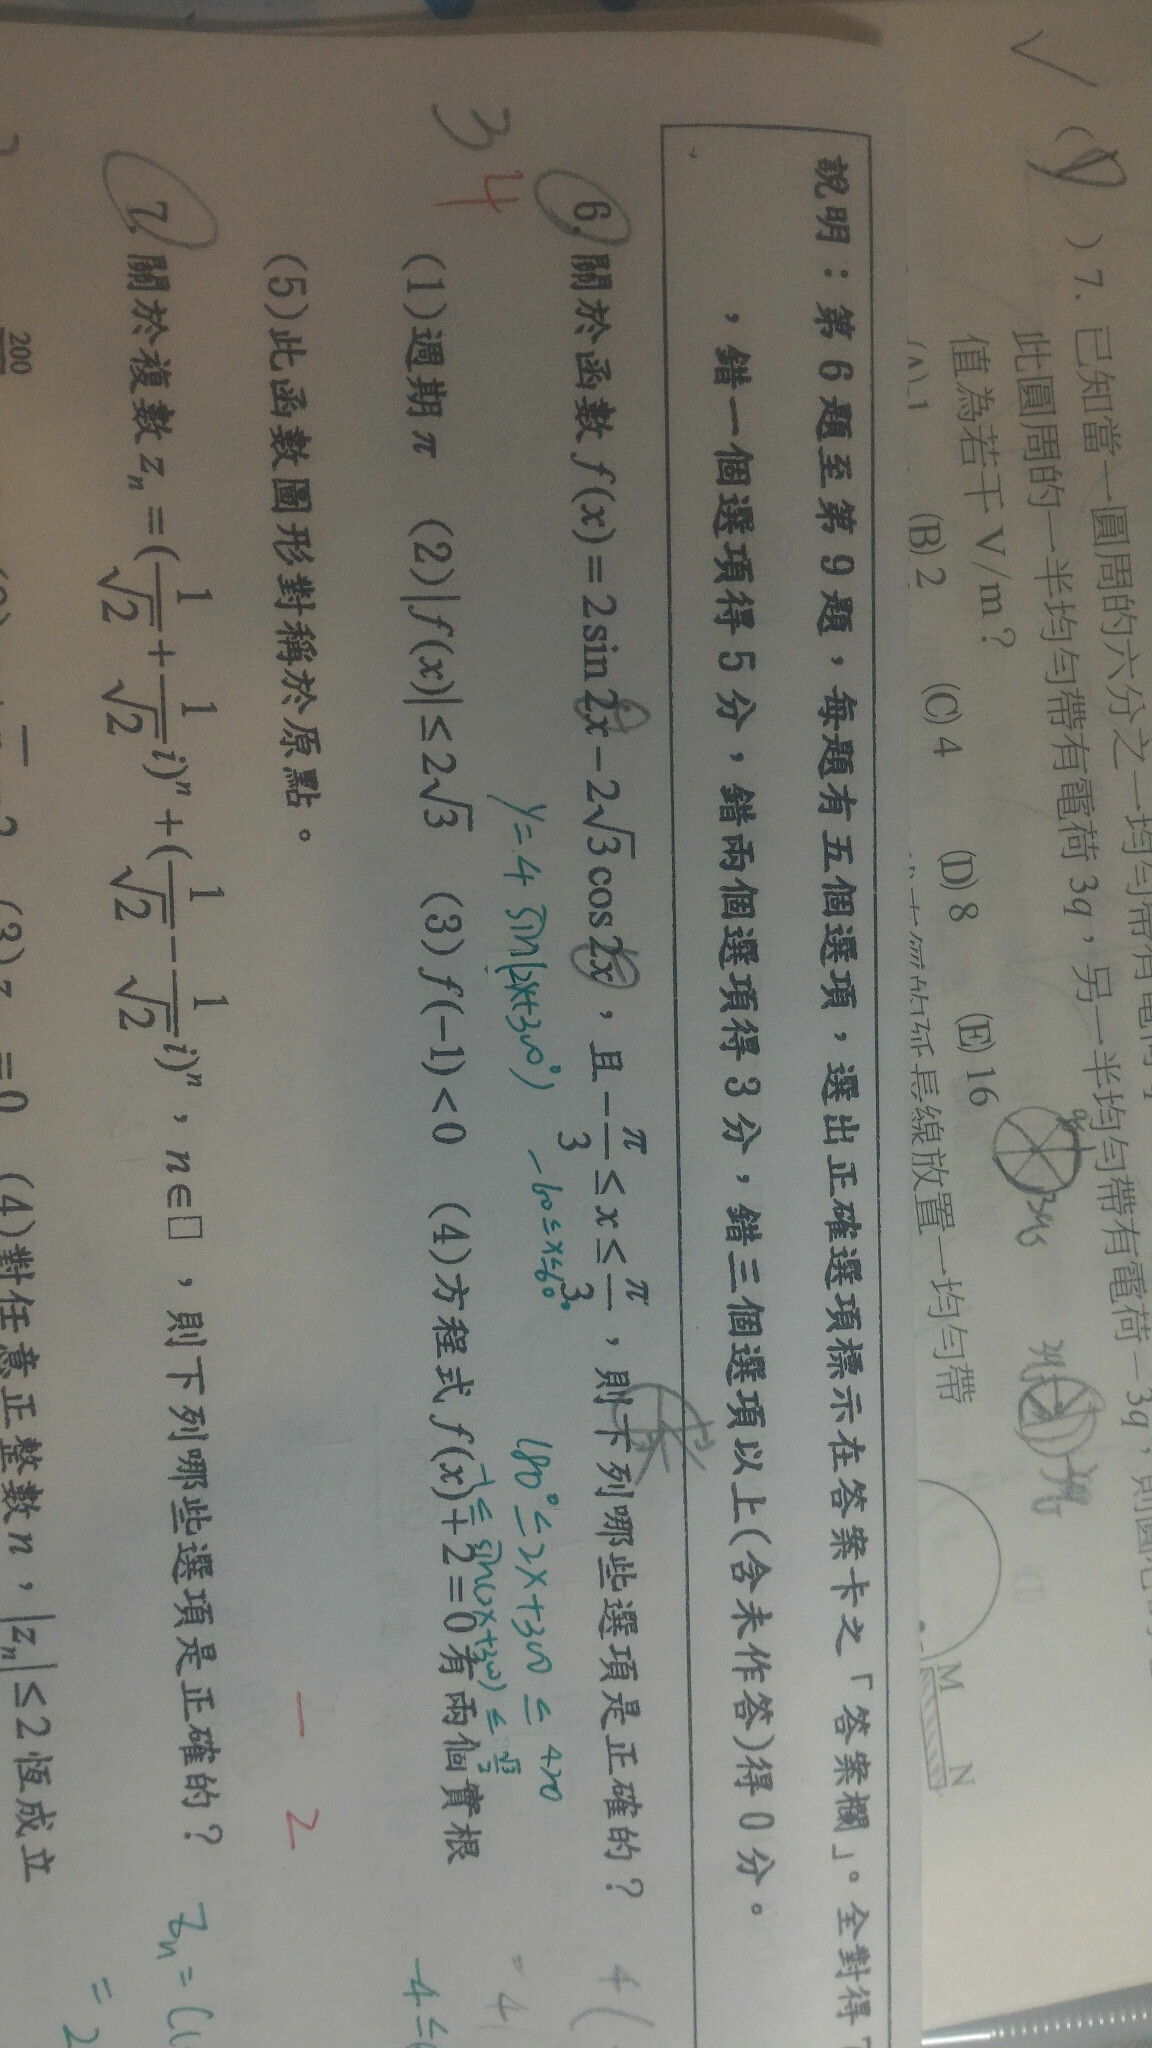 7. 已知當一圓周的六分之一均勻帶有電荷
此圓周的一半均勻帶有電荷 3q，另一半均勻帶有電荷 -3q，則圓
值為若干 V/m？
(A) 1 (B) 2 (C) 4 (D) 8 (E) 16
延長線放置一均勻帶
M N
說明：第 6 題至第 9 題，每題有五個選項，選出正確選項標示在答案卡之「答案欄」。全對得
，錯一個選項得 5 分，錯兩個選項得 3 分，錯三個選項以上(含未作答)得 0 分。
6. 關於函數 f(x)=2sin2x-2√3cos2x，且 -π/3≤x≤π/3，則下列哪些選項是正確的？
y=4 sin(2x+300°) -60≤x≤60°
180°≤2x+300≤420
-1≤sin(2x+300)≤√3/2
3 4
(1)週期 π (2)|f(x)|≤2√3 (3)f(-1)<0 (4)方程式 f(x)+2=0 有兩個實根
(5)此函數圖形對稱於原點。
-4≤
- 2
7. 關於複數 zₙ=(1/√2+1/√2 i)ⁿ+(1/√2-1/√2 i)ⁿ，n∈□，則下列哪些選項是正確的？
zₙ=(
= 2
200
(3) z =0 (4)對任意正整數 n，|zₙ|≤2 恆成立